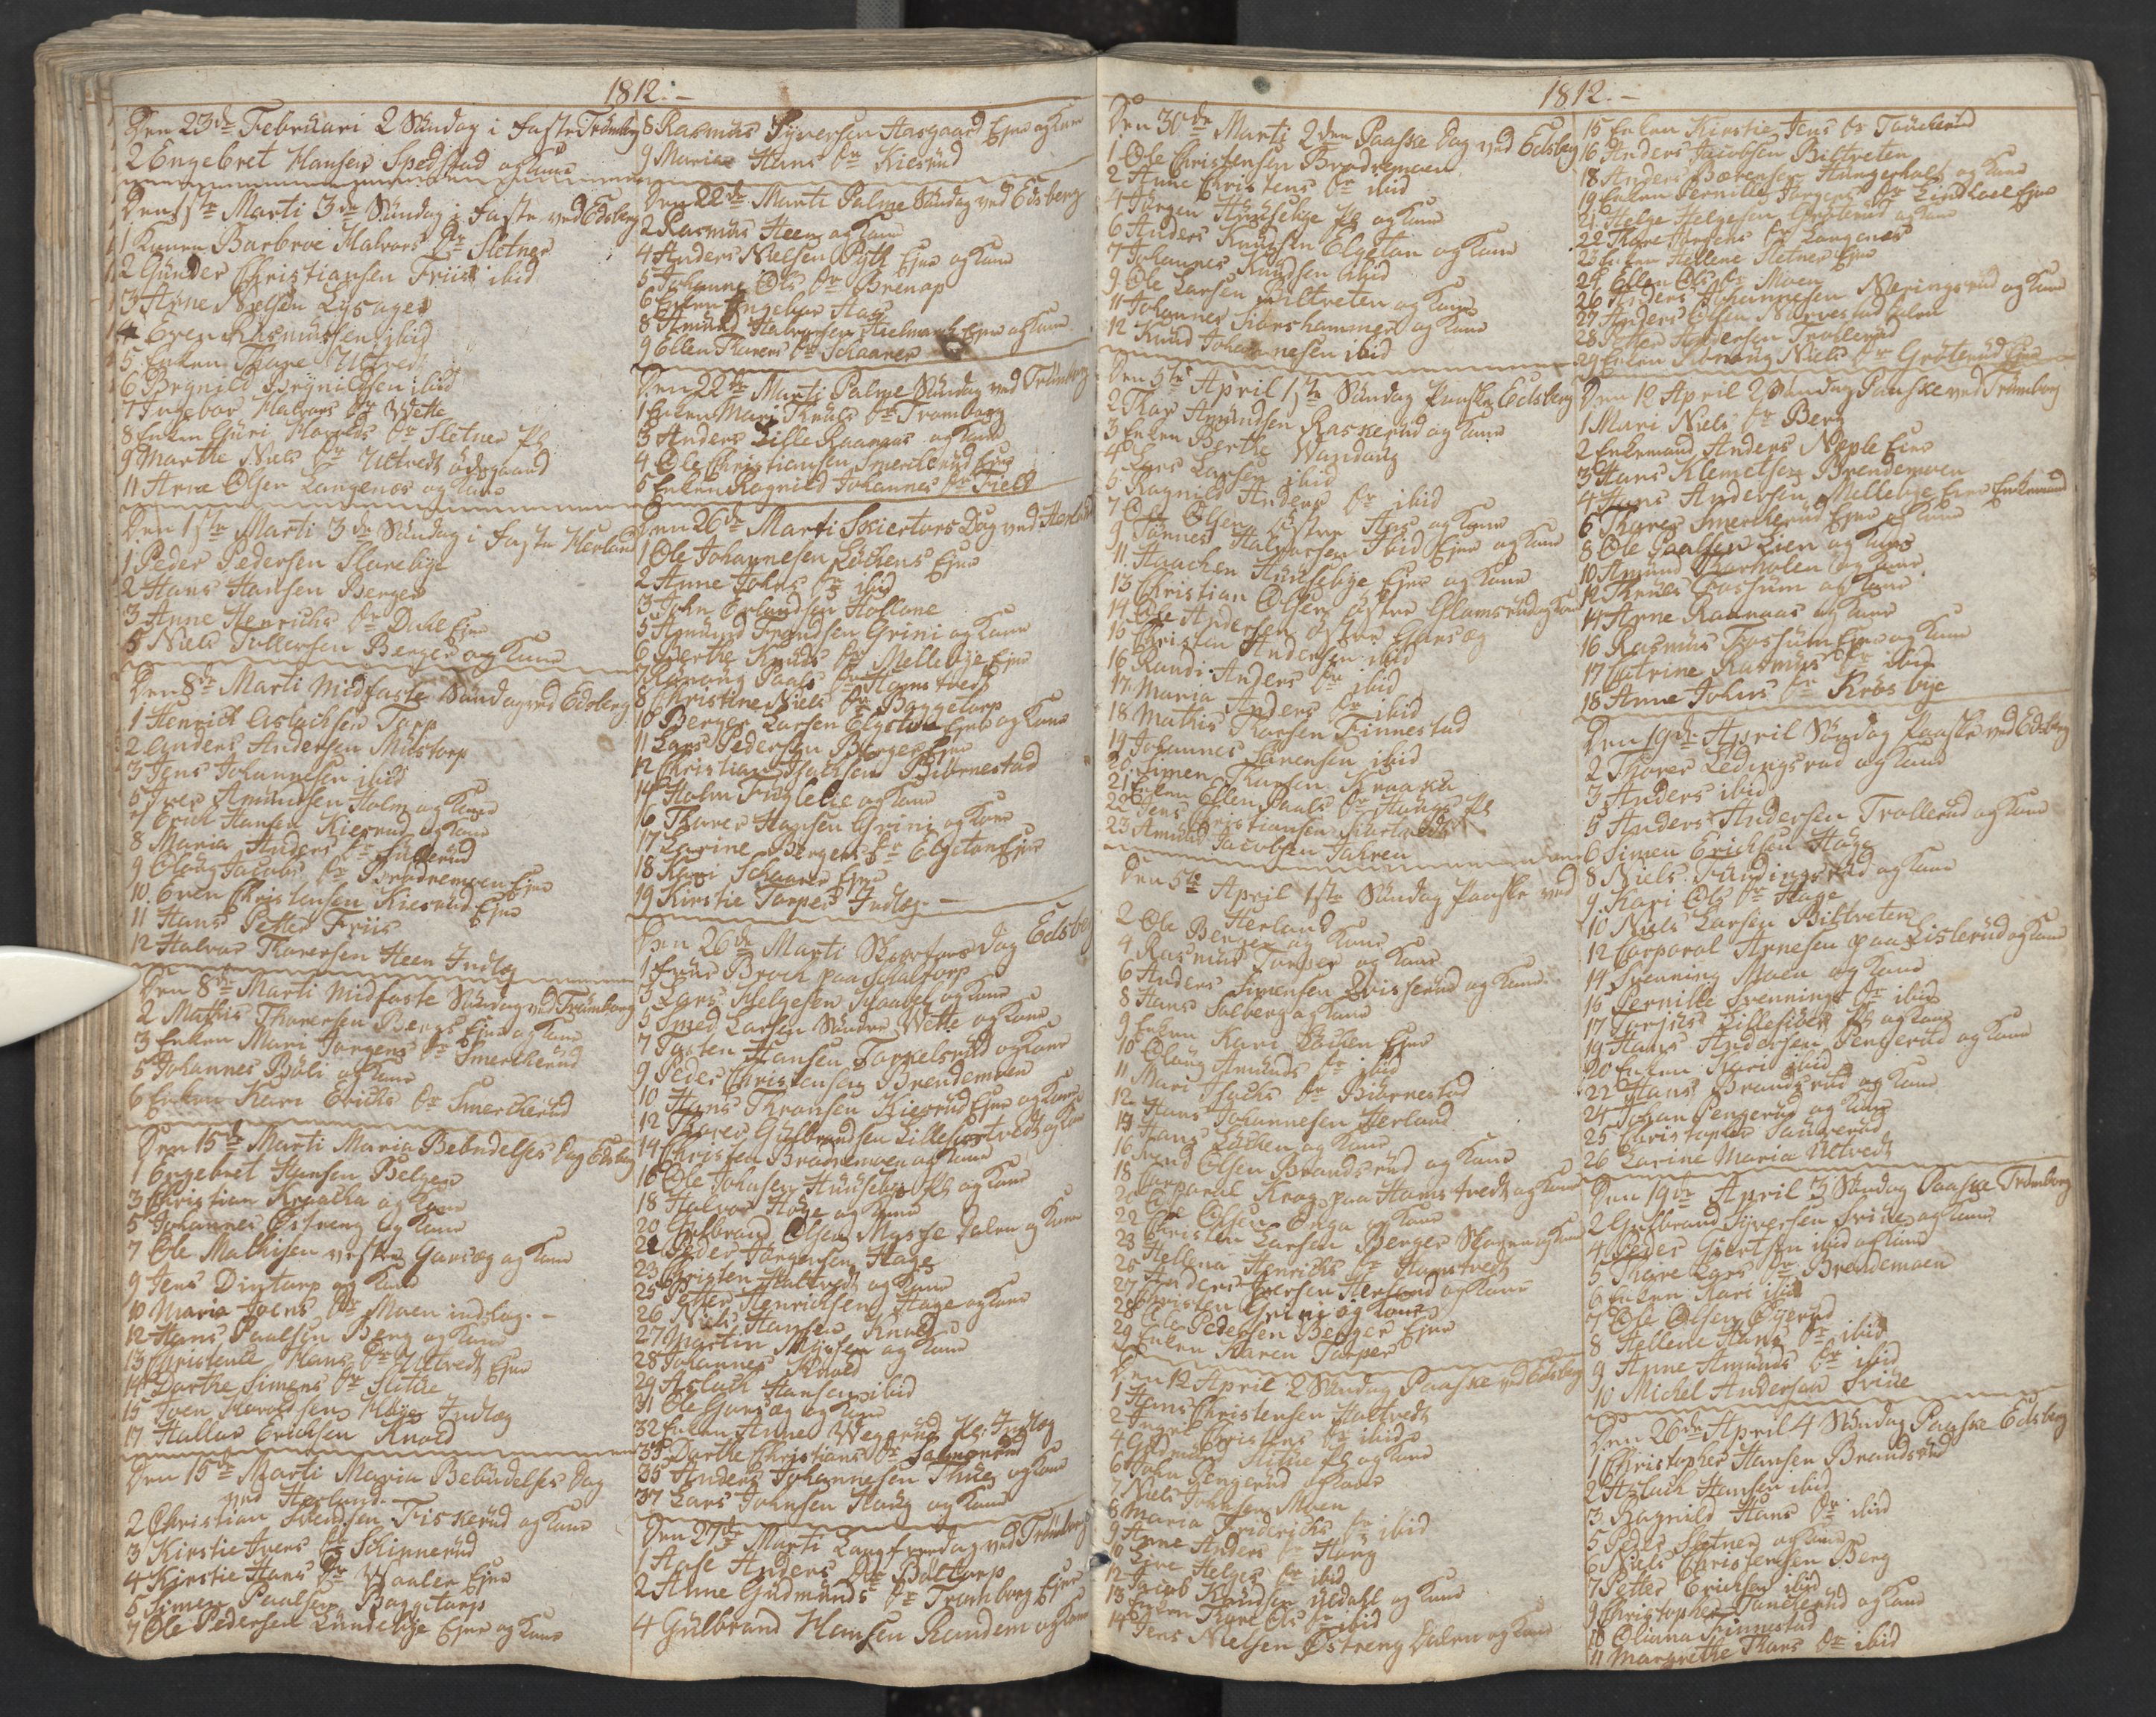 1812.-
Den 23de Februari 2 Söndag i Faste Trömborg
2 Engebret Hansen Spedstad og Kune
Den 1ste Marti 3de Söndag i Faste ved Edsberg
1 Konen Barbroe Halvors Dr Sletner
2 Gunder Christiansen Friis ibid
3 Arne Nielsen Lysager
4 Even Rasmussen ibid
5 Enken Thore Ultvedt
6 Brynild Brynildsen ibid
7 Ingebor Halvors Dr Vette
8 Enken Guri Haralds Dr Sletner Pl
9 Marthe Niels Dr Ultvedt ödegaard
11 Arne Olsen Langenes og Kone
Den 1ste Marti 3de Söndag i Faste Herland
1 Peder Pedersen Slarebye
2 Hans Hansen Berger
3 Anne Henrichs Dr Dahl Ejer
5 Niels Tollersen Berger og Kune
Den 8de Marti Midfaste Söndag ved Edsberg
1 Henrich Aslachsen Torp
2 Anders Andersen Mustorp
3 Jens Johannesen ibid
5 Iver Amundsen Holm og Kone
7 Erich Hansen Kierrud og Kone
8 Maria Anders Dr
9 Oloug Jacobs Dr Brødremoen Ejer
10 Even Christensen Kiesrud Ejer
11 Hans Petter Friis
12 Halvor Thoresen Heen Indlæg
Den 8de Marti Midfaste Söndag ved Trömborg
2 Mathis Thoresen Berg Ejer og Kone
3 Enken Mari Jörgens Dr Smertherud
5 Johannes Böli og Kone
6 Enken Kari Erichs Dr Smercherud
Den 15de Marti Maria Bebudelses Dag Edsberg
1 Engebret Hansen Belger
3 Christian Kraacha og Kone
5 Johannes Østreng og Kone
7 Ole Mathisen vestre Garseg og Kone
9 Jens Dingtorp og Kone
10 Maria Joens Dr Moen indlæg.-
12 Hans Paalsen Berg og Kone
13 Christense Hans Dr Ultvedt Ejer
14 Dorthe Simens Dr Slitue
15 Joen Haraldsen Höye Indlæg
17 Hallor Erichsen Knold
Den 15de Marti Maria Bebudelses Dag
ved Herland.-
2 Christian Svendsen Fiskerud og Kone
3 Kirstie Ivers Dr Schinnerud
4 Kirstie Hans Dr Waaler Ejer
5 Simen Paalsen Baggetorp
7 Ole Pedersen Lundebye Ejer og Kone
8 Rasmus Syversen Aasgaard Ejer og Kone
9 Maria Hans Dr Kiesrud
Den 22de Marti Palme Söndag ved Edsberg
2 Rasmus Heen og Kone
4 Anders Nielsen Pyth Ejer og Kone
5 Johanne Ols Dr Grenap
6 Enken Ingebor Aas
8 Amund Halvorsen Hielmark Ejer og Kone
9 Ellen Thores Dr Schaarer
Den 22de Marti Palme Söndag ved Trömborg
1 Enken Mari Knuds Dr Tromborg
3 Anders Lille Raanaas og Kone
4 Ole Christiansen Smerterud Ejer
5 Enken Ragnild Johannes Dr Field
Den 26de Marti Skiertors Dag ved Herland
1 Ole Johannesen Löchens Ejer
2 Anne Johns Dr ibid
3 John Erlandsen Hollane
5 Amund Frandsen Grini og Kone
6 Berthe Knuds Dr Mellebye Ejer
7 Ronoug Paals Dr Hamstvedt
8 Christine Niels Dr Baggetorp
10 Berger Larsen Elgetun Ejer og Kone
11 Lars Pedersen Berger Ejer
12 Christian Isachsen Biörnestad
14 Holm Fuglelie og Kone
16 Thorer Hansen Grini og Kone
17 Larine Bergers Dr Elgetun Ejer
18 Kari Schaarer Ejer
19 Kirstie Torper Indlæg.-
Den 26de Marti Skiertors Dag Edsberg
1 Frue Broch paa Schaltorp
3 Lars Helgesen Schaabel og Kone
5 Smed Larsen Söndre Vette og Kone
7 Torsten Hansen Toppelsrud og Kone
9 Peder Christensen Brendemoen
10 Hans Thronsen Kiesrud Ejer og Kone
12 Thorer Gulbrandsen Lillesiortvedt og Kone
14 Christen Brødremoen og Kone
16 Ole Johnsen Huusebye Pl og Kone
18 Halvor Höye og Kone
20 Gulbrand Olsen Mysse Dalen og Kone
21 Peder Jörgensen Hage
23 Christen Haltvedt og Kone
25 Petter Henrichsen Hage og Kone
26 Niels Hansen Knold
27 Martin Mysen og Kone
28 Johannes Knold
29 Aslach Hansen ibid
31 Ole Garseg og Kone
32 Enken Anne Wegerud Pl. Indlæg
33 Dorthe Christians Dr Salmonrud
35 Anders Johannesen Thue og Kone
37 Lars Johnsen Houg og Kone
Den 27de Marti Langfredag ved Trömborg
1 Aase Anders Dr Böltorp
2 Anne Gudmunds Dr Tromborg Ejer
4 Gulbrand Hansen Randem og Kone
1812.-
Den 30de Marti 2den Paaske Dag ved Edsberg
1 Ole Christensen Brødremoen
2 Anne Christens Dr ibid
4 Jörgen Huusebye Pl og Kone
6 Anders Knudsen Elgetun og Kone
7 Johannes Knudsen ibid
9 Ole Larsen Biltveten og Kone
11 Johannes Siorshammer og Kone
12 Knud Johannesen ibid
Den 5te April 1ste Söndag Paaske Edsberg
2 Thor Amundsen Raskerud og Kone
3 Enken Berthe Wandaug
4 Lars Larsen ibid
5 Ragnild Anders Dr ibid
7 Ole Olsen østre Aas og Kone
9 Tönnes Halvorsen Ibid Ejer og Kone
11 Haachen Huusebye Ejer og Kone
13 Christian Olsen østre Glamsrud og Kone
14 Ole Andersen østre Garseg
15 Christen Andersen ibid
16 Randi Anders Dr ibid
17 Maria Anders Dr ibid
18 Mathis Thorsen Finnestad
19 Johannes Sörensen ibid
20 Simen Thorsen Kraacha
21 Enken Ellen Paals Dr Haugs Pl
22 Jens Christiansen
23 Amund Jacobsen Jahren
Den 5te April 1ste Söndag Paaske ved
Herland
2 Ole Berger og Kone
4 Rasmus Torper og Kone
6 Anders Simensen Qvisserud og Kone
8 Hans Solberg og Kone
9 Enken Kari Löchen Ejer
10 Oloug Amunds Dr ibid
11 Mari Isachs Dr Biörnestad
12 Hans Johannesen Herland
14 Hans Löchen og Kone
16 Svend Olsen Brandsrud og Kone
18 Corporal Krog paa Hamstvedt og Kone
20 Ole Olsen Enga og Kone
22 Christen Larsen Berger Skoven og Kone
23 Hellena Henrichs Dr Hamstvedt
25 Anders Iversen Herland og Kone
27 Christen Grini og Kone
28 Ole Pedersen Berger Ejer
29 Enken Karen Torper
Den 12 April 2 Söndag Paaske ved Edsberg
1 Hans Christensen Haltvedt
2 Inger Christens Dr ibid
4 Gudmund Slitue Pl og Kone
6 John Pengerud og Kone
7 Niels Johnsen Moen
8 Maria Friderichs Dr ibid
9 Anne Anders Dr Houg
10 Lene Helges Dr ibid
12 Jacob Knudsen Uldahl og Kone
13 Enken Thore Ols Dr ibid
14 Jens Nielsen Østreng Dalen og Kone
15 Enken Kirstie Jens Dr Toucherud
16 Anders Jacobsen Biltveten
18 Anders Hungerholt og Kone
19 Enken Pernille Jörgens Dr Ejer
21 Helge Helgesen Gröterud og Kone
22 Thore Dr Langenes
23 Enken Hellene Sletner Ejer
24 Ellen Ols Dr Moen
26 Anders Johannesen Neringsrud og Kone
27 Anders Olsen Narvestad Dalen
28 Petter Andersen Trollerud
29 Enken Ronoug Niels Dr Gröterud Ejer
Den 12 April 2 Söndag Paaske ved Trömborg
1 Mari Niels Dr Berg
2 Enkemand Anders Neple Ejer
3 Hans Klemetsen Brendemoen
4 Hans Andersen Mellebye Ejer Enkemand
6 Thorer Smertherud Ejer og Kone
8 Ole Paalsen Lien og Kone
10 Amund Thorholen og Kone
12 Knud Fossum og Kone
14 Arne Raanaas og Kone
16 Rasmus Fossum Ejer og Kone
17 Catrine Rasmus Dr ibid
18 Anne Johns Dr Krösbye
Den 19de April Söndag Paaske ved Edsberg
2 Thorer Ledingsrud og Kone
3 Anders ibid
5 Anders Andersen Trollerud og Kone
6 Simen Erichsen Hage
8 Niels Fundingsrud og Kone
9 Kari Ols Dr Hage
10 Niels Larsen Biltveten
12 Corporal Arnesen paa Listerud og Kone
14 Svenning Moen og Kone
15 Pernille Svennings Dr ibid
17 Torjus Lillesiöen Pl og Kone
19 Hans Andersen Pengerud og Kone
20 Enken Kari ibid
22 Hans Brandsrud og Kone
24 Johan Pengerud og Kone
25 Christopher
26 Larine Maria Ultvedt
Den 19de April 3 Söndag Paaske Trömborg
2 Gulbrand Syversen Sviue og Kone
4 Peder Giertsen ibid og Kone
5 Thore Lars Dr Brendemoen
6 Enken Kari ibid
7 Ole Olsen Öyerud
8 Hellene Hans Dr ibid
9 Anne Amunds Dr ibid
10 Michel Andersen Sviue
Den 26de April 4 Söndag Paaske Edsberg
1 Christopher Hansen Brandsrud
2 Aslach Hansen ibid
3 Ragnild Hans Dr ibid
5 Peder Sletner og Kone
6 Niels Christensen Berg
7 Petter Erichsen ibid
9 Christopher Toucherud og Kone
10 Oliana Finnestad
11 Margrethe Thors Dr ibid